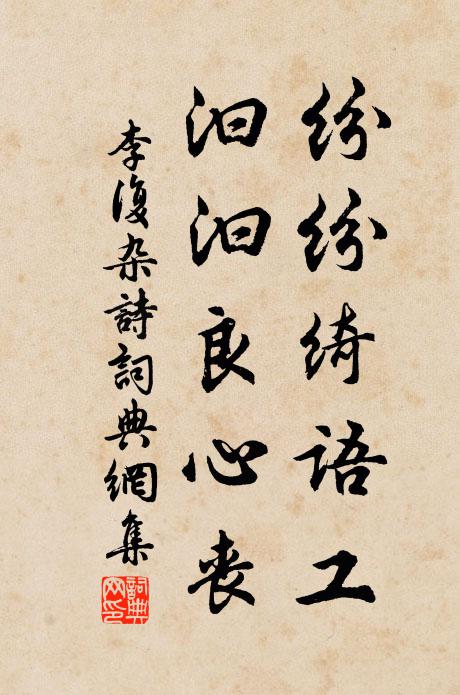 纷纷绮语工
汩汩良心丧
李復杂詩詞典網集
詞典网印